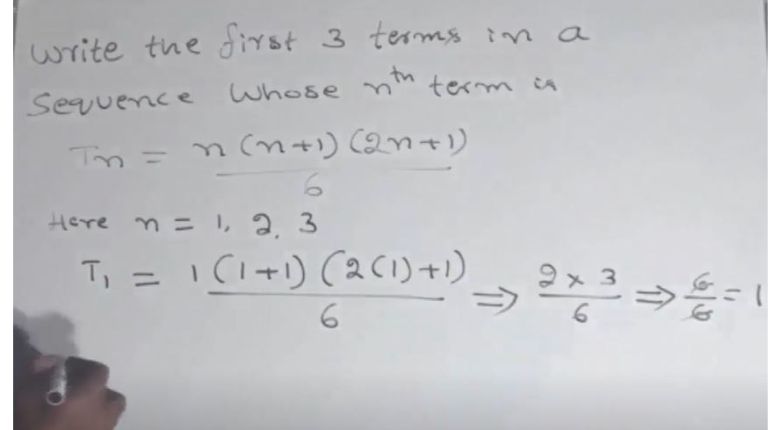 Write the first 3 terms in a
Sequence whose nth term is
Tn = n(n+1)(2n+1)
6
Here n = 1, 2, 3
T1 = 1(1+1)(2(1)+1) ⇒ 2×3 ⇒ 6 = 1
6 6 6